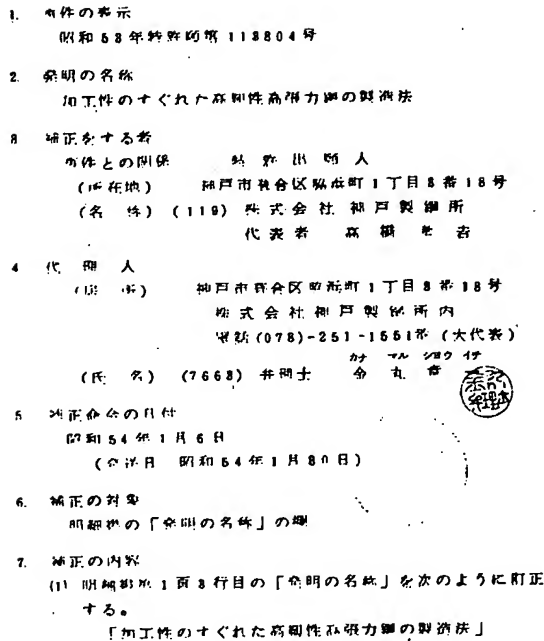 1. 事件の表示
昭和53年特許願第118804号
2. 発明の名称
加工性のすぐれた高剛性高張力鋼の製造法
3 補正をする者
事件との関係 特許出願人
(所在地) 神戸市葺合区脇浜町1丁目3番18号
(名称) (119) 株式会社神戸製鋼所
代表者 高橋
4 代理人
(住所) 神戸市葺合区脇浜町1丁目3番18号
株式会社神戸製鋼所内
電話(078)-251-1551番(大代表)
カナ マル ショウ イチ
(氏名) (7668) 弁理士 金丸章
5 補正命令の日付
昭和54年1月6日
(発送日 昭和54年1月30日)
6. 補正の対象
明細書の「発明の名称」の欄
7. 補正の内容
(1) 明細書第1頁3行目の「発明の名称」を次のように訂正
する。
「加工性のすぐれた高剛性高張力鋼の製造法」